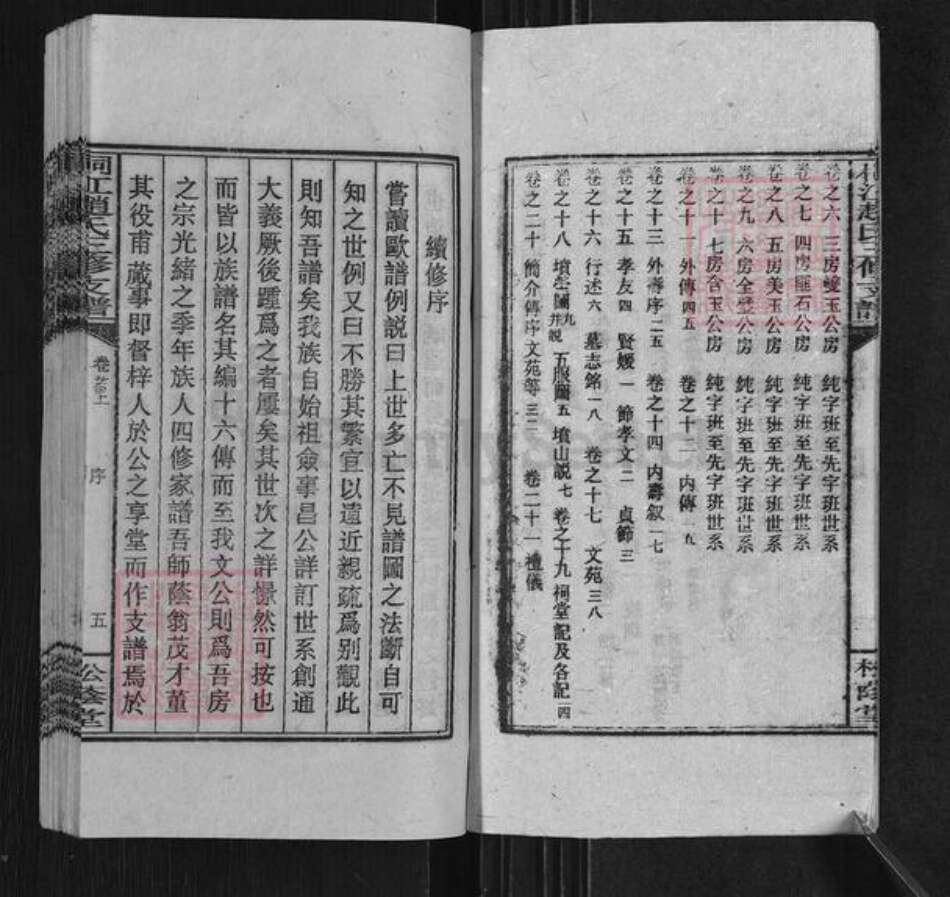 卷之六 三房雙玉公房 純字班至先字班世系
卷之七 四房 石公房 純字班至先字班世系
卷之八 五房美玉公房 純字班至先字班世系
卷之九 六房全璧公房 純字班至先字班世系
卷之十 七房含玉公房 純字班至先字班世系
卷之十一 外傳四五 卷之十二 內傳一五
卷之十三 外壽序二五 卷之十四 內壽叙一七
卷之十五 孝友四 賢媛一 節孝文二 貞節三
卷之十六 行述六 墓志銘一八 卷之十七 文苑三八
卷之十八 墳塋圖九并說 五服圖五 墳山說七 卷之十九 祠堂記及各記一四
卷之二十 簡介傳序文苑等三二 卷二十一 禮儀
松蔭堂
續修序
嘗讀歐譜例說曰上世多亡不見譜圖之法斷自可
知之世例又曰不勝其繁宜以遠近親疏爲別觀此
則知吾譜矣我族自始祖僉事昌公詳訂世系創通
大義厥後踵爲之者屢矣其世次之詳憬然可按也
而皆以族譜名其編十六傳而至我文公則爲吾房
之宗光緒之季年族人四修家譜吾師蔭翁茂才董
其役甫蕆事即督梓人於公之享堂而作支譜焉於
桐江趙氏三修支譜
卷首上
序
五
松蔭堂